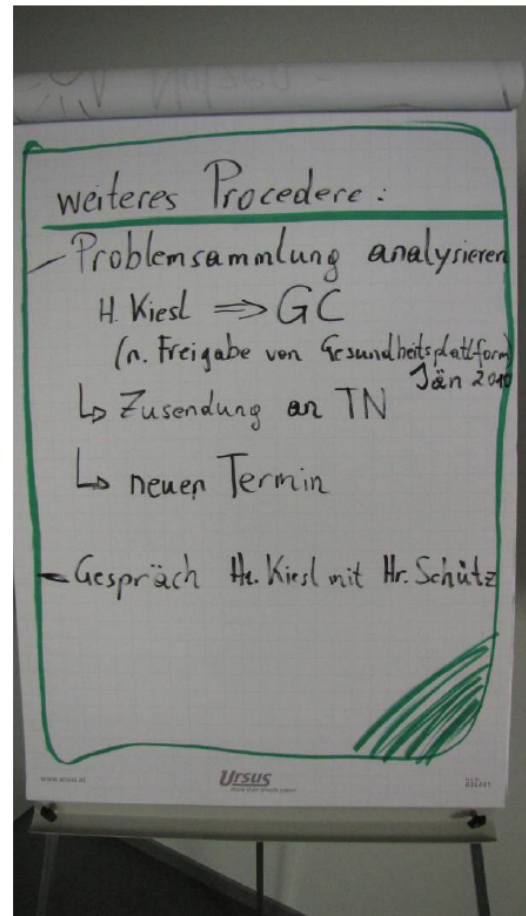 weiteres Procedere:
- Problemsammlung analysieren
H. Kiesl ⇒ GC
(n. Freigabe von Gesundheitsplattform)
Jän 2010
↳ Zusendung an TN
↳ neuen Termin
- Gespräch Hr. Kiesl mit Hr. Schütz
www.ursus.at
Ursus
more than simple paper